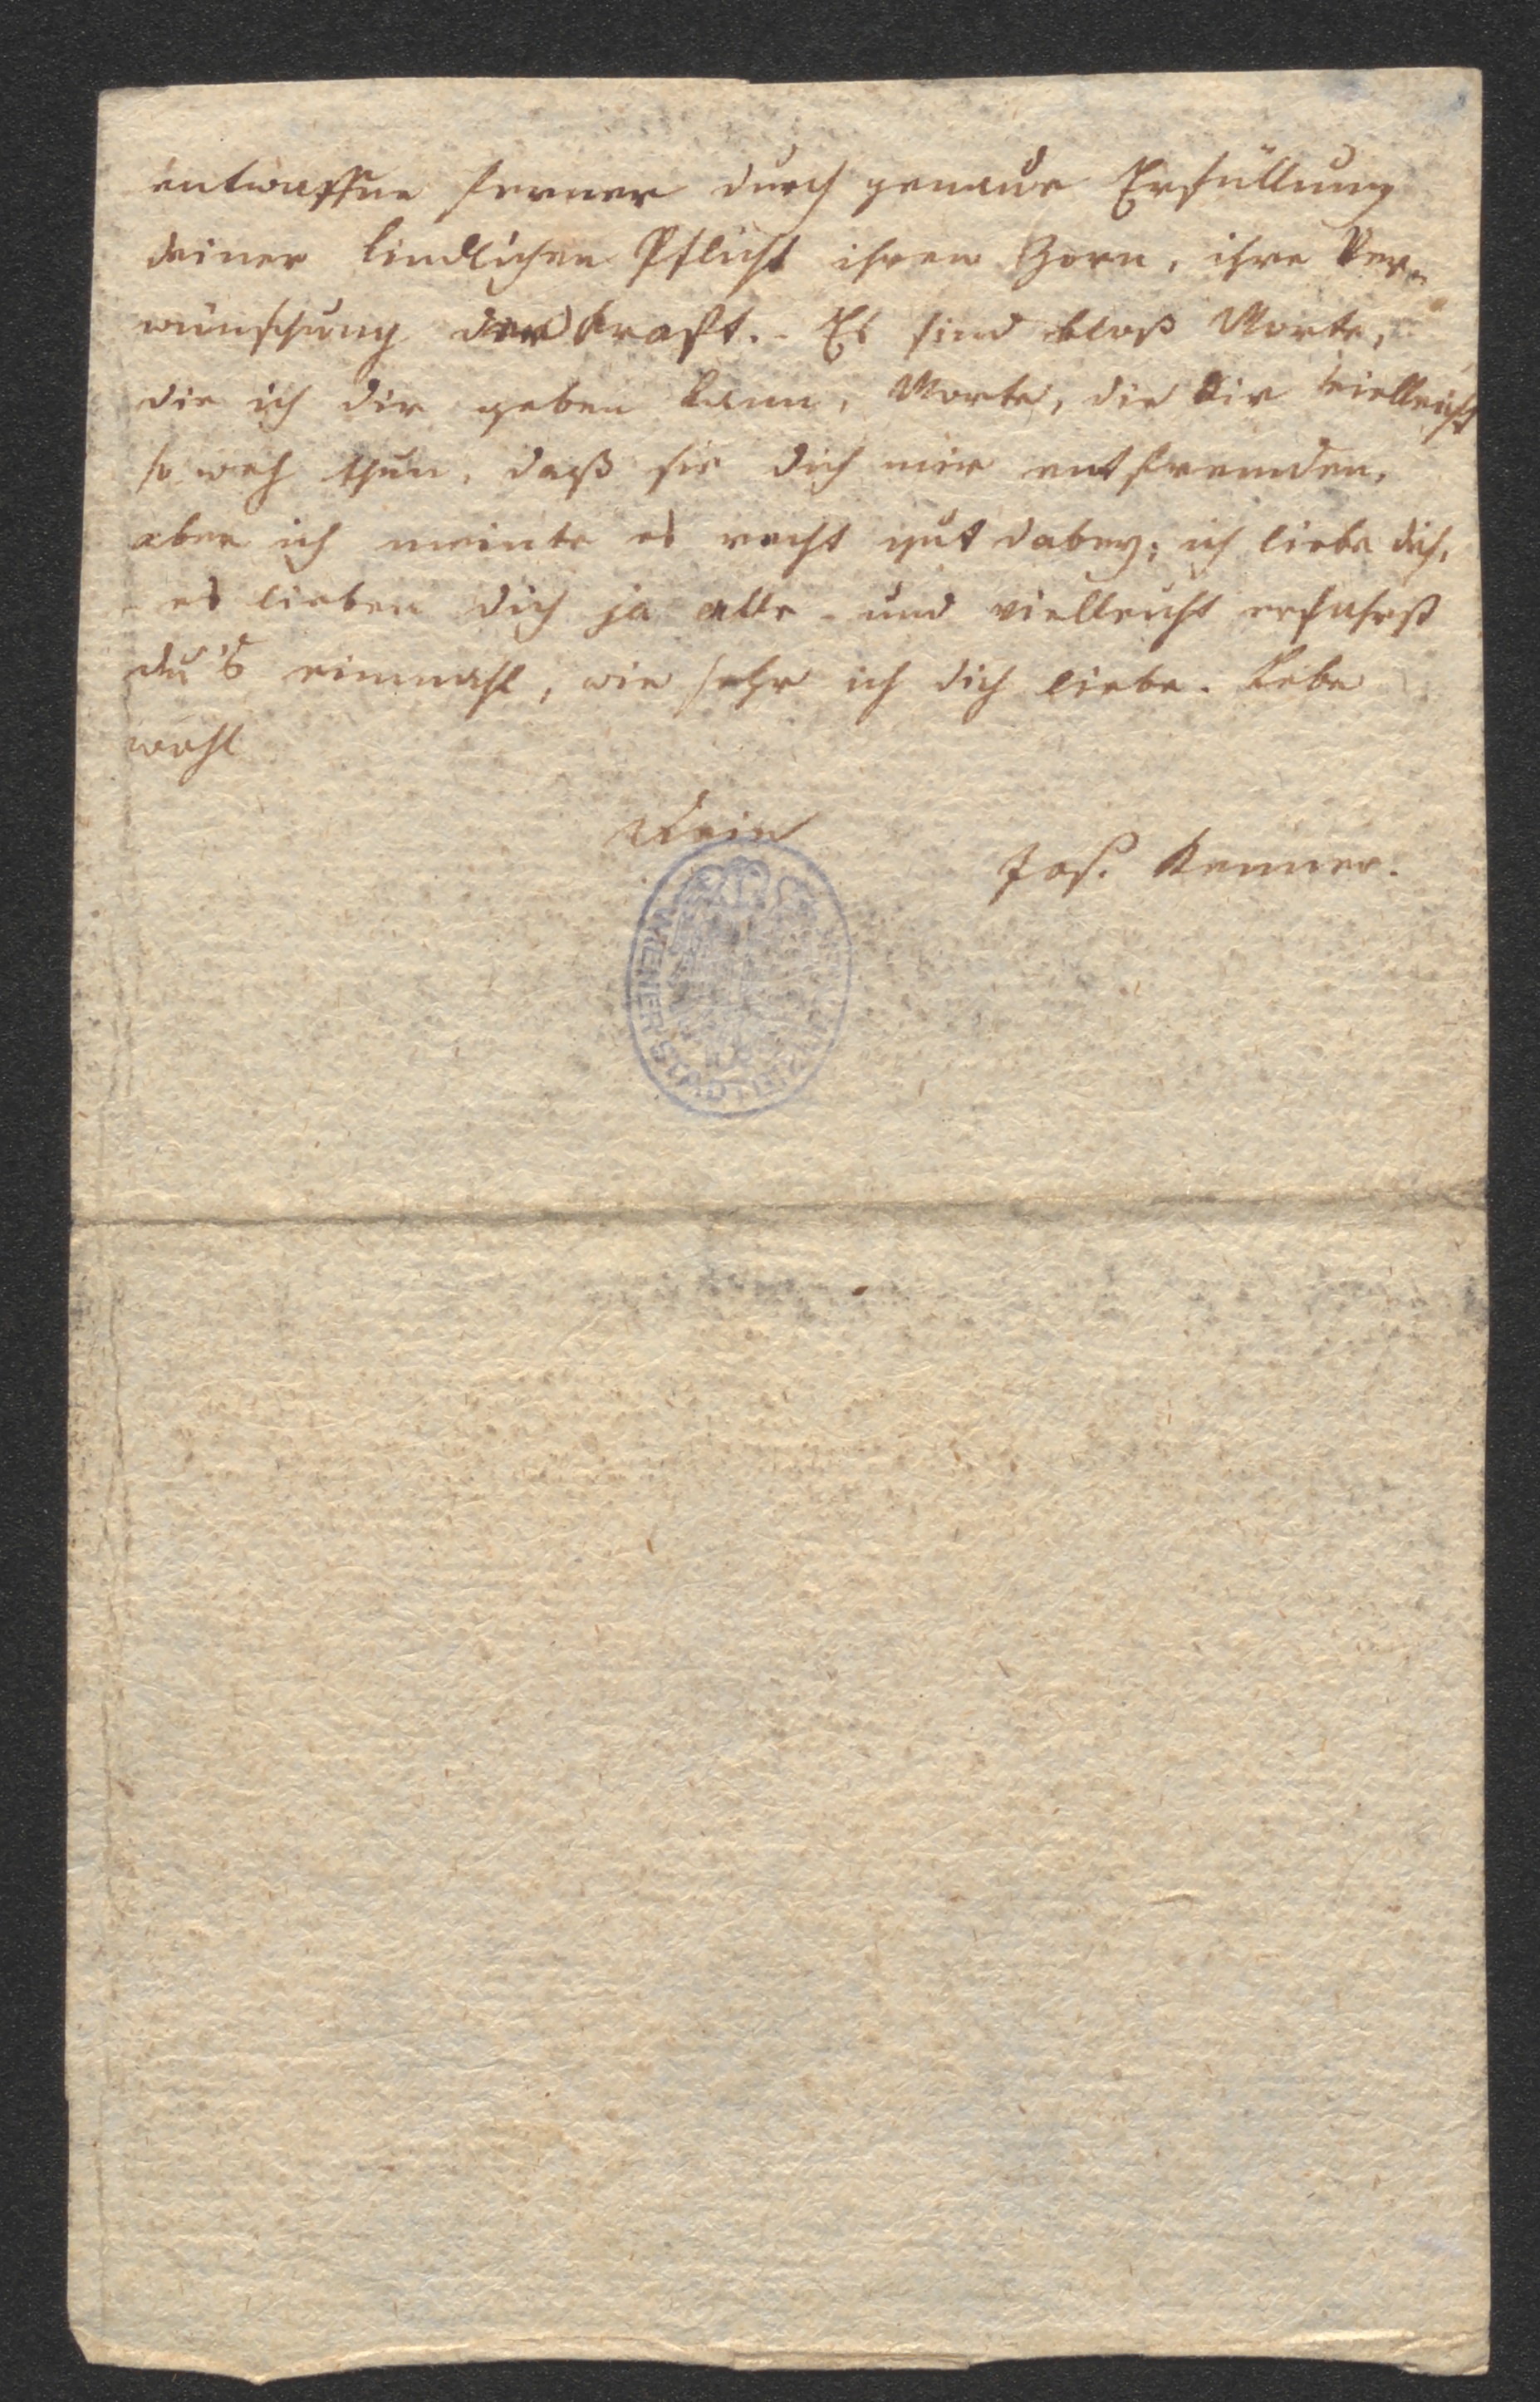 entwaffne ferner durch genaue Erfüllung
deiner kindlichen Pflicht ihren Zorn, ihre Ver-
wünschung der Kraft. - Es sind bloß Worte,
die ich dir geben kann, Worte, die dir vielleicht
so weh thun, daß sie dich mir entfremden,
aber ich meinte es recht gut dabey; ich liebe dich,
es lieben dich ja alle - und vielleicht erfahrst
du's einmahl, wie sehr ich dich liebe. Lebe
wohl
Dein
Jos. Kenner.
WIENER